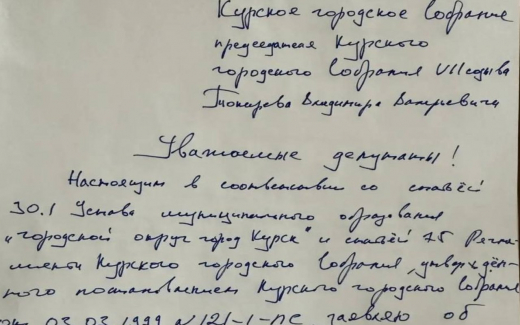 Курское городское Собрание
председателя Курского
городского Собрания VII созыва
Токарева Владимира Валерьевича
Уважаемые депутаты!
Настоящим в соответствии со статьёй
30.1 Устава муниципального образования
„городской округ город Курск" и статьёй 75 Регла-
мента Курского городского Собрания, утверждён-
ного постановлением Курского городского Собрания
от 03.03.1999 №121-1-ПС заявляю об